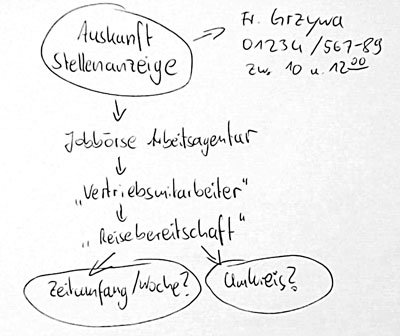 Auskunft
Stellenanzeige
Fr. Grzywa
01234/567-89
zw. 10 u. 12⁰⁰
Jobbörse Arbeitsagentur
„Vertriebsmitarbeiter"
„Reisebereitschaft"
Zeitumfang/Woche?
Umkreis?